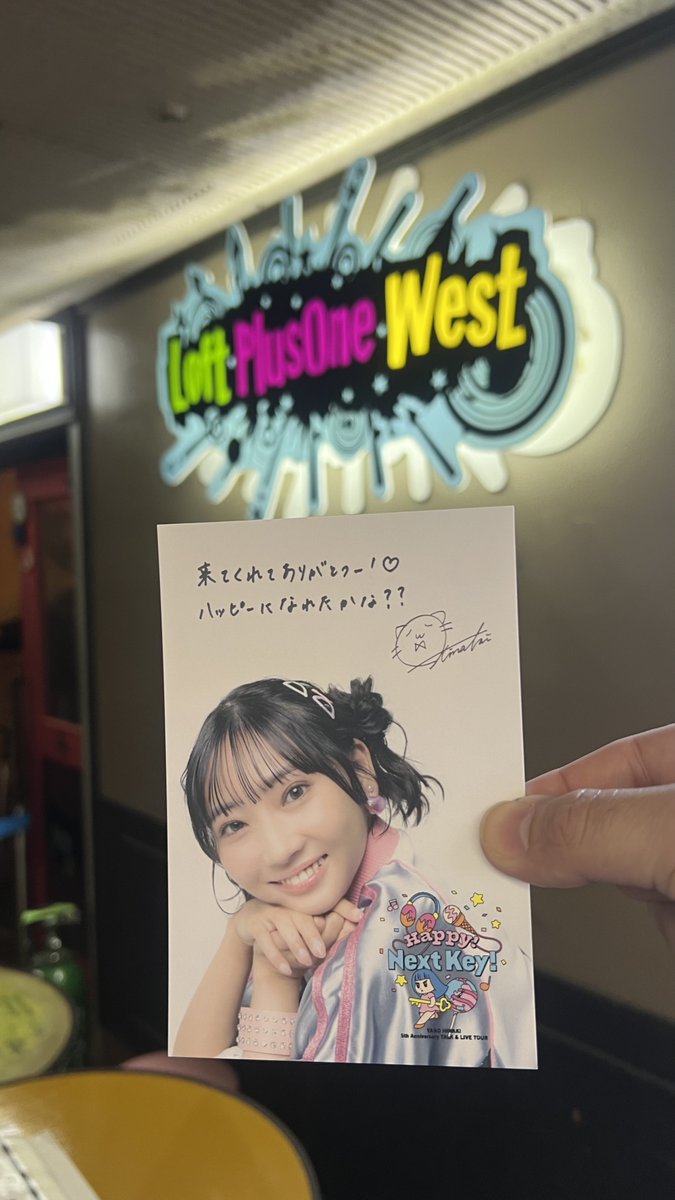 Loft PlusOne West
来てくれてありがとうー!♡
ハッピーになれたかな??
Happy!
Next Key!
YANO HINAKI
5th Anniversary TALK & LIVE TOUR